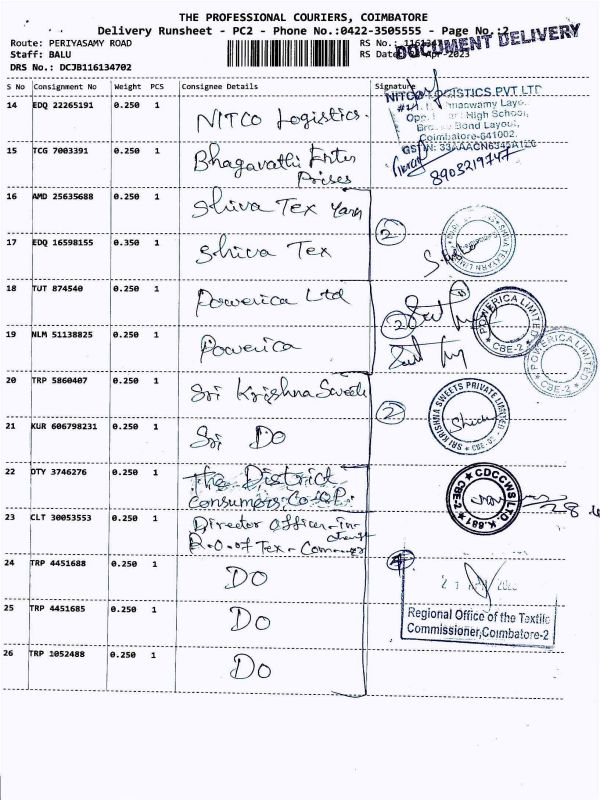 THE PROFESSIONAL COURIERS, COIMBATORE
Delivery Runsheet - PC2 - Phone No.:0422-3505555 - Page No.:2
Route: PERIYASAMY ROAD
Staff: BALU
DRS No.: DCJB116134702
RS No.:
RS Date: Apr-2023
DOCUMENT DELIVERY
S No Consignment No Weight PCS Consignee Details Signature
14 EDQ 22265191 0.250 1 NITCO Logistics.
NITCO LOGISTICS.PVT LTD
High School,
Bond Layout,
Coimbatore-641002.
GSTIN: 33AAACN6345A1Z6
8903219747
15 TCG 7003391 0.250 1 Bhagavathi Enter
Prises
16 AMD 25635688 0.250 1 Shiva Tex Yarn
2
17 EDQ 16598155 0.350 1 Shiva Tex
SHIVA TEXYARN LIMITED
18 TUT 874540 0.250 1 Powerica Ltd
2
POWERICA LIMITED
CBE-2
19 NLM 51138825 0.250 1 Powerica
POWERICA LIMITED
CBE-2
20 TRP 5860407 0.250 1 Sri Krishna Sweets
2
SRI KRISHNA SWEETS PRIVATE LIMITED
21 KUR 606798231 0.250 1 Sri Do
22 DTY 3746276 0.250 1 The District
Consumers.Co.OP.
CDCCWS LTD. K.681
CBE-2
23 CLT 30053553 0.250 1 Director Officer-In-
R.O.of Tex-Commer
24 TRP 4451688 0.250 1 Do
25 TRP 4451685 0.250 1 Do
Regional Office of the Textile
Commissioner,Coimbatore-2
26 TRP 1052488 0.250 1 Do